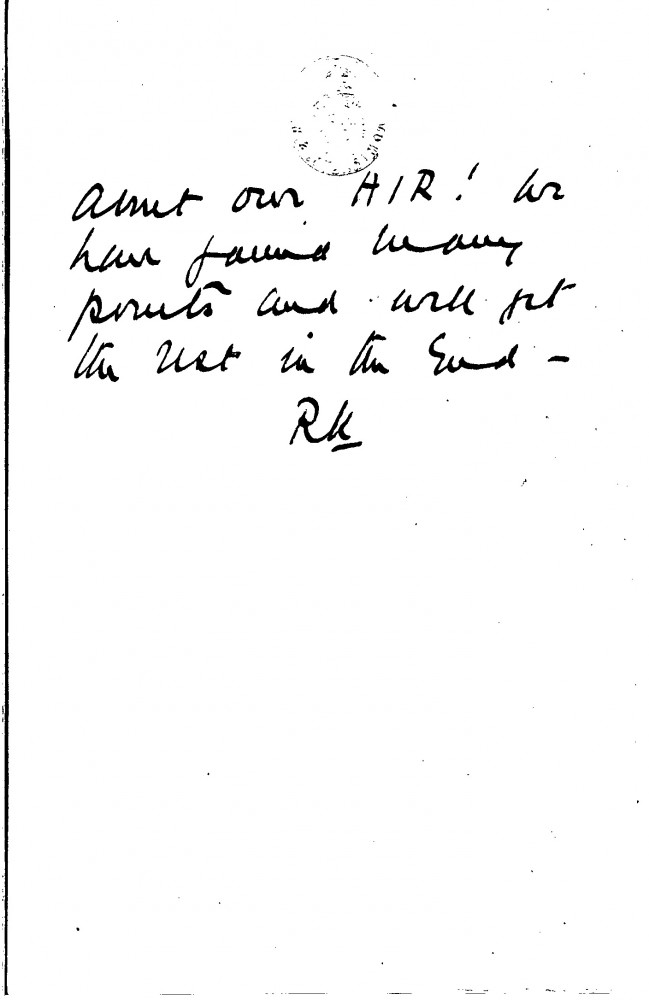 about our AIR! We
have gained many
points and will get
the rest in the End –
RK